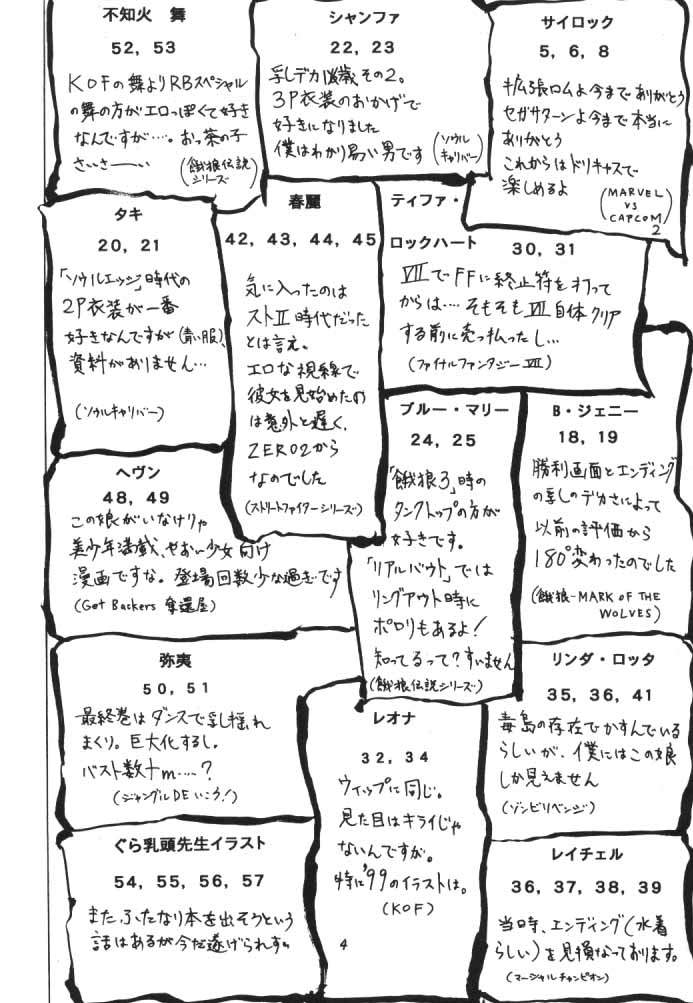 不知火　舞
52, 53
KOFの舞よりRBスペシャル
の舞の方がエロっぽくて好き
なんですが……。お茶の子
さいさーーい
(餓狼伝説
シリーズ)
シャンファ
22, 23
乳デカ 歳 その2。
3P衣装のおかげで
好きになりました
僕はわかり易い男です
(ソウル
キャリバー)
サイロック
5, 6, 8
拡張ロムよ今までありがとう
セガサターンよ今まで本当に
ありがとう
これからはドリキャスで
楽しめるよ
(MARVEL
VS
CAPCOM
2
タキ
20, 21
「ソウルエッジ」時代の
2P衣装が一番
好きなんですが(青い服)、
資料がありません…
(ソウルキャリバー)
春麗
42, 43, 44, 45
気に入ったのは
ストⅡ時代だった
とは言え。
エロな視線で
彼女を見始めたの
は意外と遅く、
ZERO2から
なのでした
(ストリートファイターシリーズ)
ティファ・
ロックハート
30, 31
ⅦでFFに終止符を打って
からは…. そもそもⅦ自体クリア
する前に売っ払ったし…
(ファイナルファンタジーⅦ)
ブルー・マリー
24, 25
「餓狼3」時の
タンクトップの方が
好きです。
「リアルバウト」では
リングアウト時に
ポロリもあるよ!
知ってるって?すいません
(餓狼伝説シリーズ)
B・ジェニー
18, 19
勝利画面とエンディング
の乳のデカさによって
以前の評価から
180°変わったのでした
(餓狼-MARK OF THE
WOLVES)
ヘヴン
48, 49
この娘がいなけりゃ
美少年満載、やおい少女向け
漫画ですな。登場回数少な過ぎです
(Get Backers 奪還屋)
弥夷
50, 51
最終巻はダンスで乳揺れ
まくり。巨大化するし。
バスト数十m……?
(ジャングルDEいこう!)
レオナ
32, 34
ウィップに同じ。
見た目はキライじゃ
ないんですが。
特に'99のイラストは。
(KOF)
リンダ・ロッタ
35, 36, 41
毒島の存在でかすんでいる
らしいが、僕にはこの娘
しか見えません
(ゾンビリベンジ)
ぐら乳頭先生イラスト
54, 55, 56, 57
また、ふたなり本を出そうという
話はあるが今だ遂げられず。
レイチェル
36, 37, 38, 39
当時、エンディング(水着
らしい)を見損なっております。
(マーシャルチャンピオン)
4